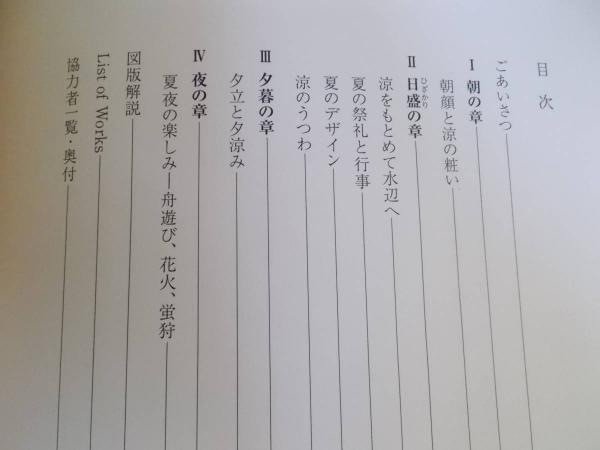 目次
ごあいさつ
I 朝の章
朝顔と涼の粧い
II 日盛の章
ひざかり
涼をもとめて水辺へ
夏の祭礼と行事
夏のデザイン
涼のうつわ
III 夕暮の章
夕立と夕涼み
IV 夜の章
夏夜の楽しみ―舟遊び、花火、蛍狩
図版解説
List of Works
協力者一覧・奥付